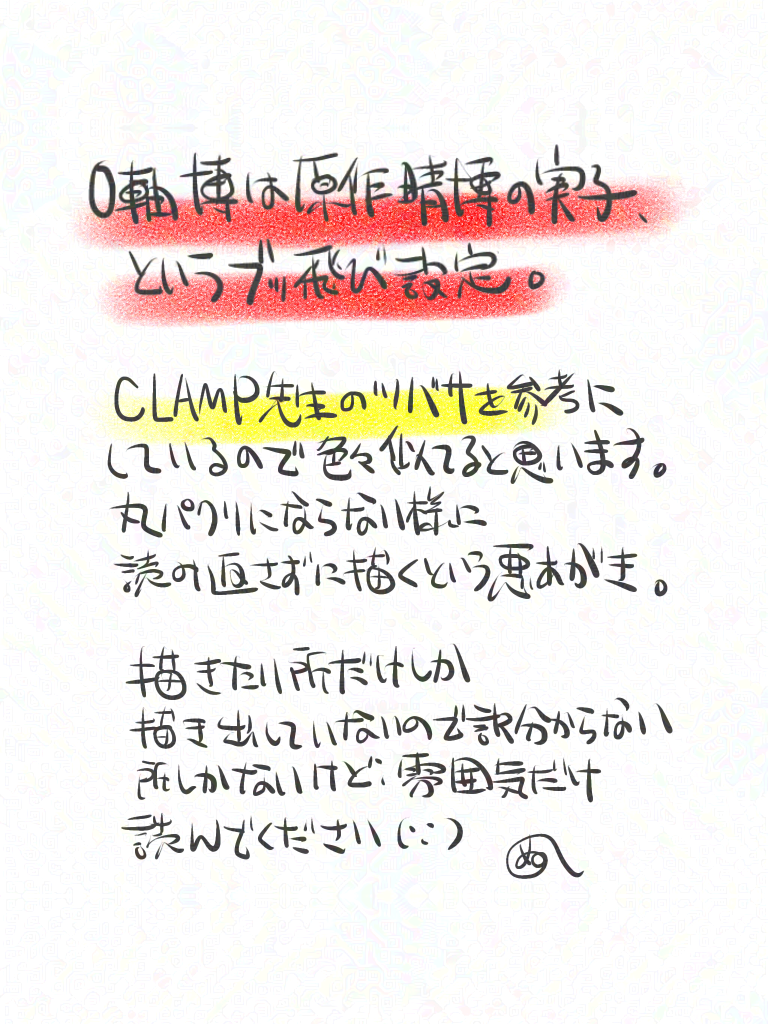 0軸博は原作晴博の実子、
というブッ飛び設定。
CLAMP先生のツバサを参考に
しているので色々似てると思います。
丸パクリにならない様に
読み返さずに描くという悪あがき。
描きたい所だけしか
描き出していないので訳分からない
所しかないけど…雰囲気だけ
読んでください(:3)
ぬ